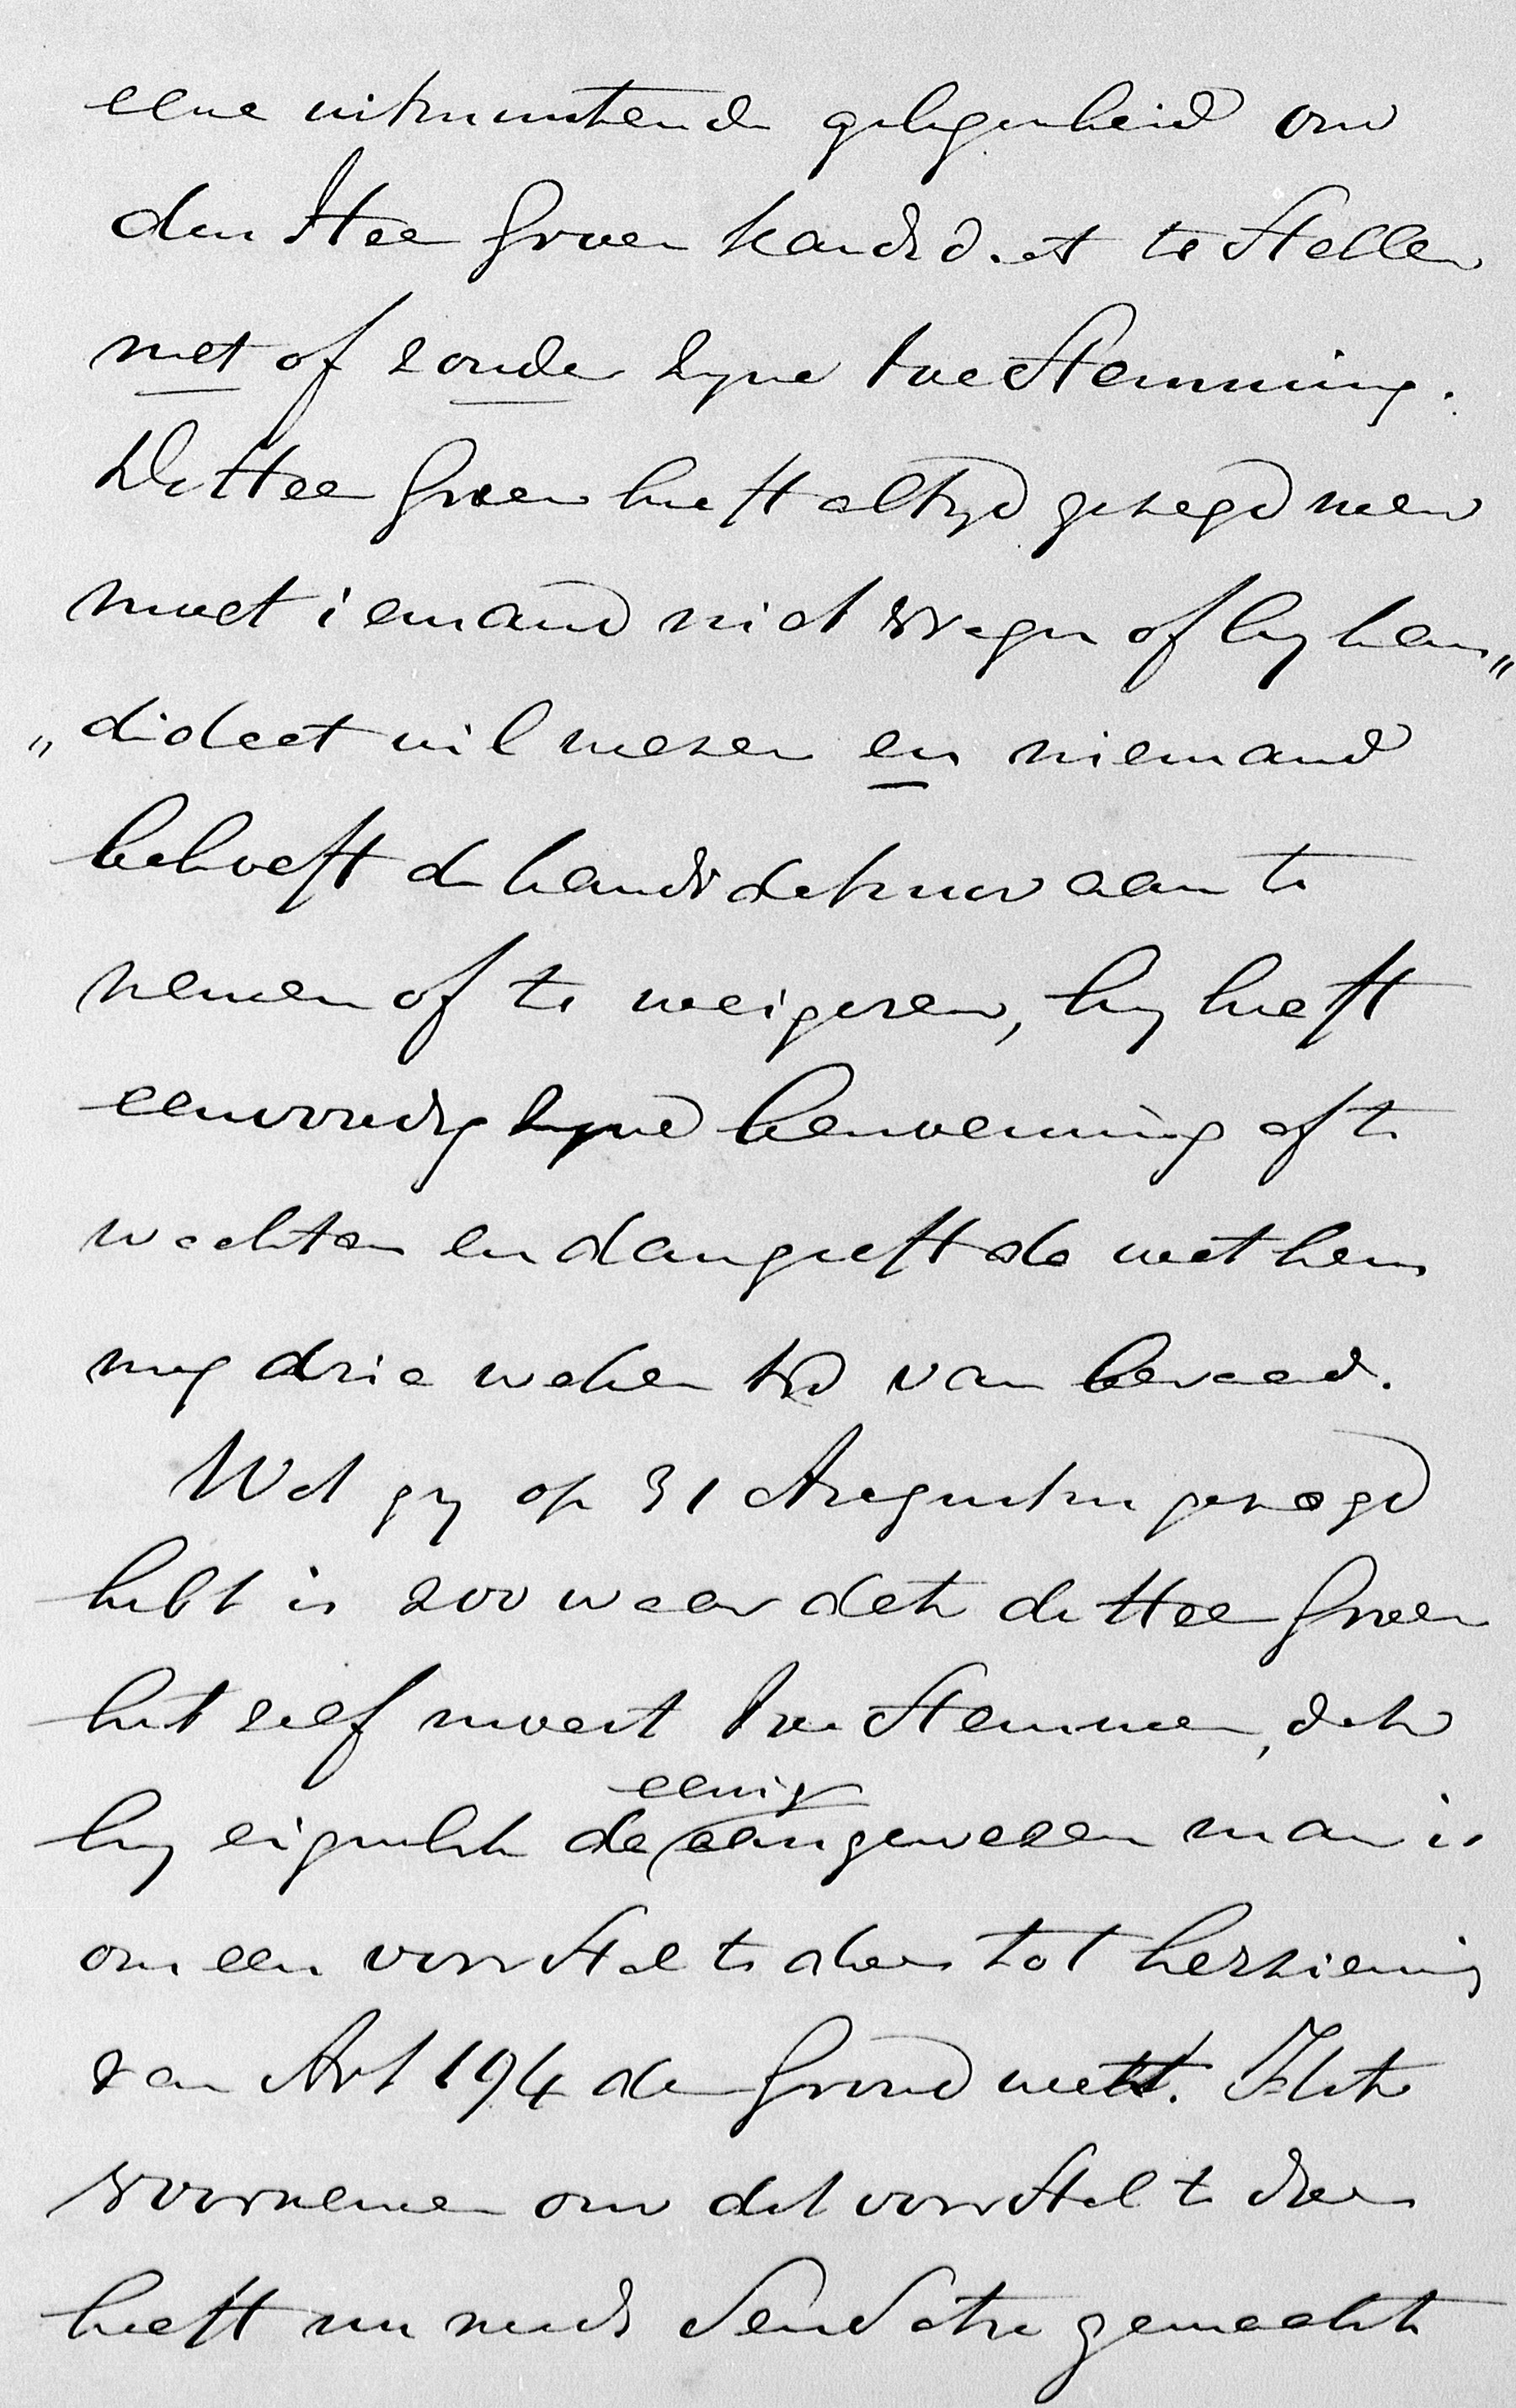 eene uitmuntende gelegenheid om
den Heer Groen kandidaat te stellen
met of zonder zyne toestemming.
De Heer Groen heeft altyd gezegd men
moet iemand niet vragen of hy kan„
„didaat wil wezen en niemand
behoeft de kandidatuur aan te
nemen of te weigeren, hy heeft
eenvoudig zyne benoeming af te
wachten en dan geeft de wet hem
nog drie weken tyd van beraad.
Wat gy op 31 Augustus gezegd
hebt is zoo waar dat de Heer Groen
het zelf moest toestemmen, dat
hy eigenlyk de eenig aangewezen man is
om een voorstel te doen tot herziening
van Art 194 der Grondwet. Het
voornemen om dat voorstel te doen
heeft nu reeds Sensatie gemaakt